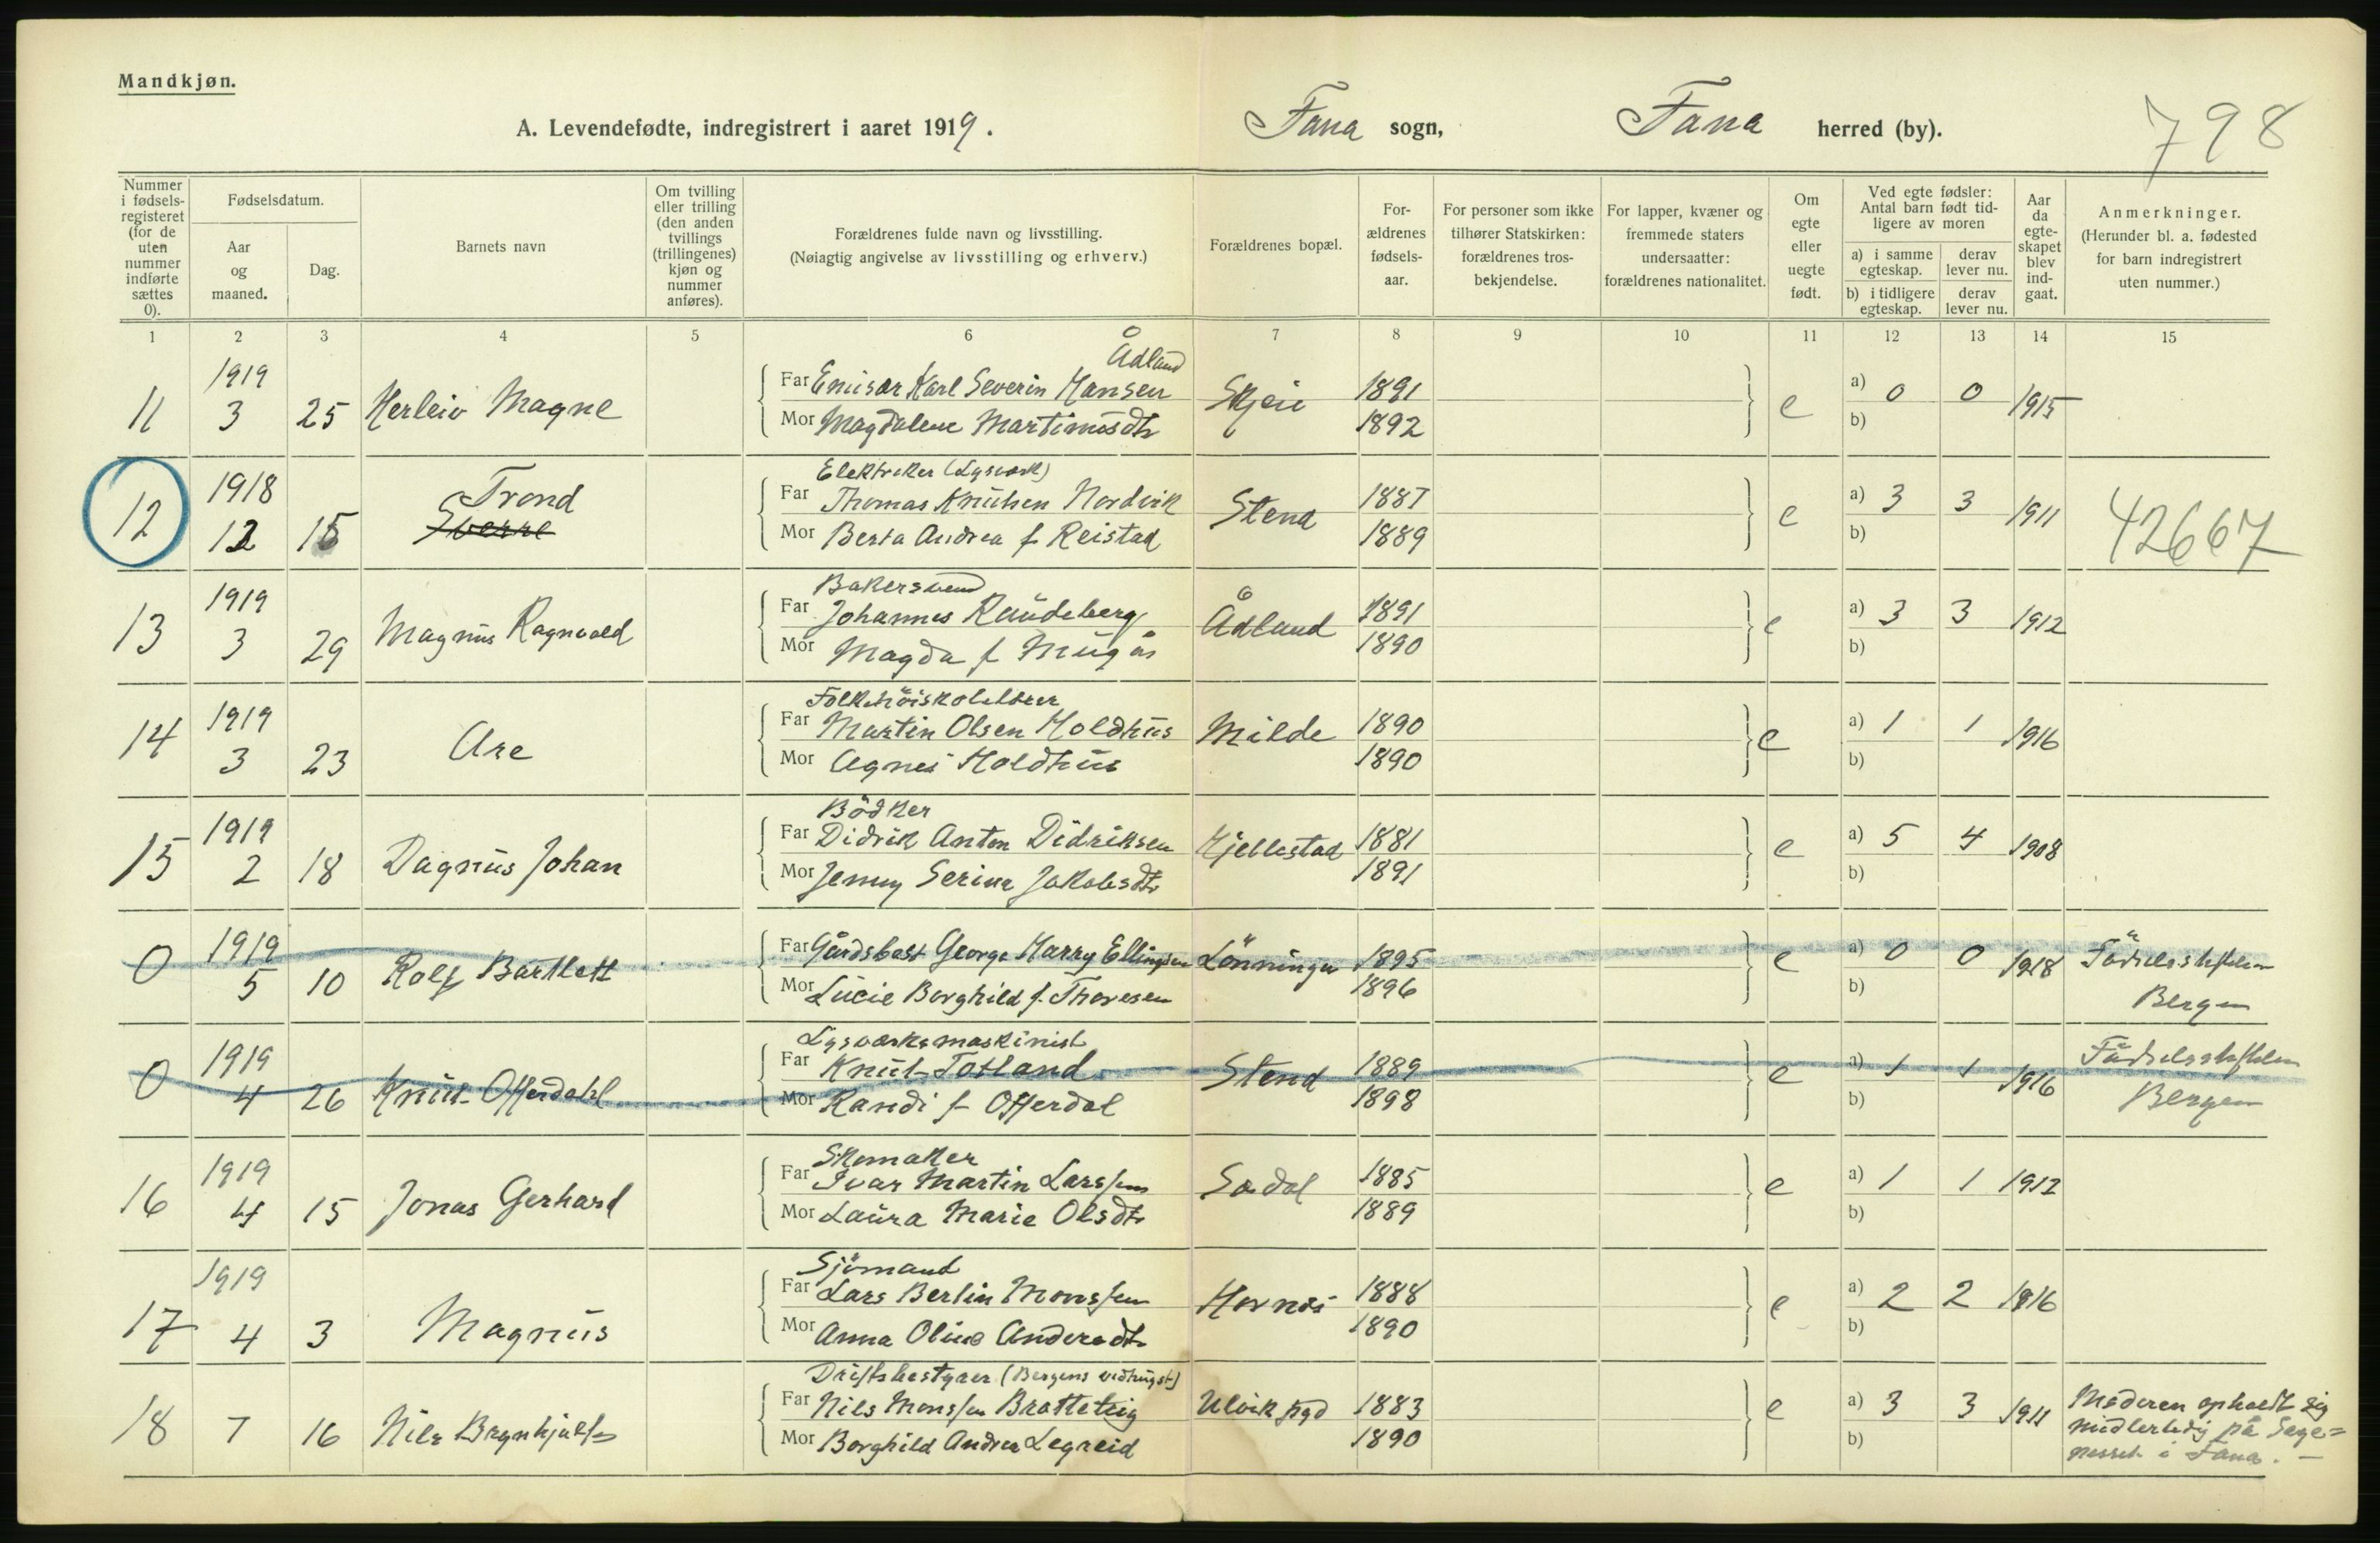 Mandkjøn.
A. Levendefødte, indregistrert i aaret 1919.
Fana sogn, Fana herred (by).
798
Nummer i fødsels-registeret (for de uten nummer indførte sættes 0).
Fødselsdatum.
Aar og maaned.
Dag.
Barnets navn
Om tvilling eller trilling (den anden tvillings (trillingenes) kjøn og nummer anføres).
Forældrenes fulde navn og livsstilling.
(Nøiagtig angivelse av livsstilling og erhverv.)
Forældrenes bopæl.
For-ældrenes fødsels-aar.
For personer som ikke tilhører Statskirken: forældrenes tros-bekjendelse.
For lapper, kvæner og fremmede staters undersaatter: forældrenes nationalitet.
Om egte eller uegte født.
Ved egte fødsler: Antal barn født tid-ligere av moren
a) i samme egteskap.
derav lever nu.
b) i tidligere egteskap.
derav lever nu.
Aar da egte-skapet blev ind-gaat.
Anmerkninger.
(Herunder bl. a. fødested for barn indregistrert uten nummer.)
1 2 3 4 5 6 7 8 9 10 11 12 13 14 15
Ådland
1919
11 3 25 Herleiv Magne
Far Emisær Karl Severin Hansen Skjeie 1891 e a) 0 0 1915
Mor Magdalene Martinusdtr 1892 b)
1918 Trond Elektriker (Lysverk)
12 12 15 Sverre
Far Thomas Knutsen Nordvik Stend 1887 e a) 3 3 1911 42667
Mor Berta Andrea f. Reistad 1889 b)
1919 Bakersvend
13 3 29 Magnus Ragnvald
Far Johannes Raudeberg Ådland 1891 e a) 3 3 1912
Mor Magda f Mugås 1890 b)
1919 Folkehöiskolelærer
14 3 23 Are
Far Martin Olsen Holdhus Milde 1890 e a) 1 1 1916
Mor Agnes Holdhus 1890 b)
1919 Bödker
15 2 18 Dagnus Johan
Far Didrik Anton Didriksen Hjellestad 1881 e a) 5 4 1908
Mor Jenny Serine Jakobsdtr 1891 b)
1919
0 5 10 Rolf Bartlett
Far Gårdsbest George Harry Ellingsen Lönningen 1895 e a) 0 0 1918 Födselsstiftelsen
Mor Lucie Borghild f. Thoresen 1896 b) Bergen
1919 Lysværksmaskinist
0 4 26 Knut Offerdahl
Far Knut Totland Stend 1889 e a) 1 1 1916 Födselsstiftelsen
Mor Randi f Offerdal 1898 b) Bergen
1919 Skomaker
16 4 15 Jonas Gerhard
Far Ivar Martin Larssen Sædal 1885 e a) 1 1 1912
Mor Laura Marie Olsdtr 1889 b)
1919 Sjömand
17 4 3 Magnus
Far Lars Berlin Monssen Hornæs 1888 e a) 2 2 1916
Mor Anna Oline Andersdtr 1890 b)
Driftsbestyrer (Bergens
18 7 16 Nils Brynhjulf
Far Nils Monssen Bratteteig Ulvik 1883 e a) 3 3 1911 Moderen opholdt sig
Mor Borghild Andrea Legreid 1890 b) midlertidig på Sage=
nesset i Fana.